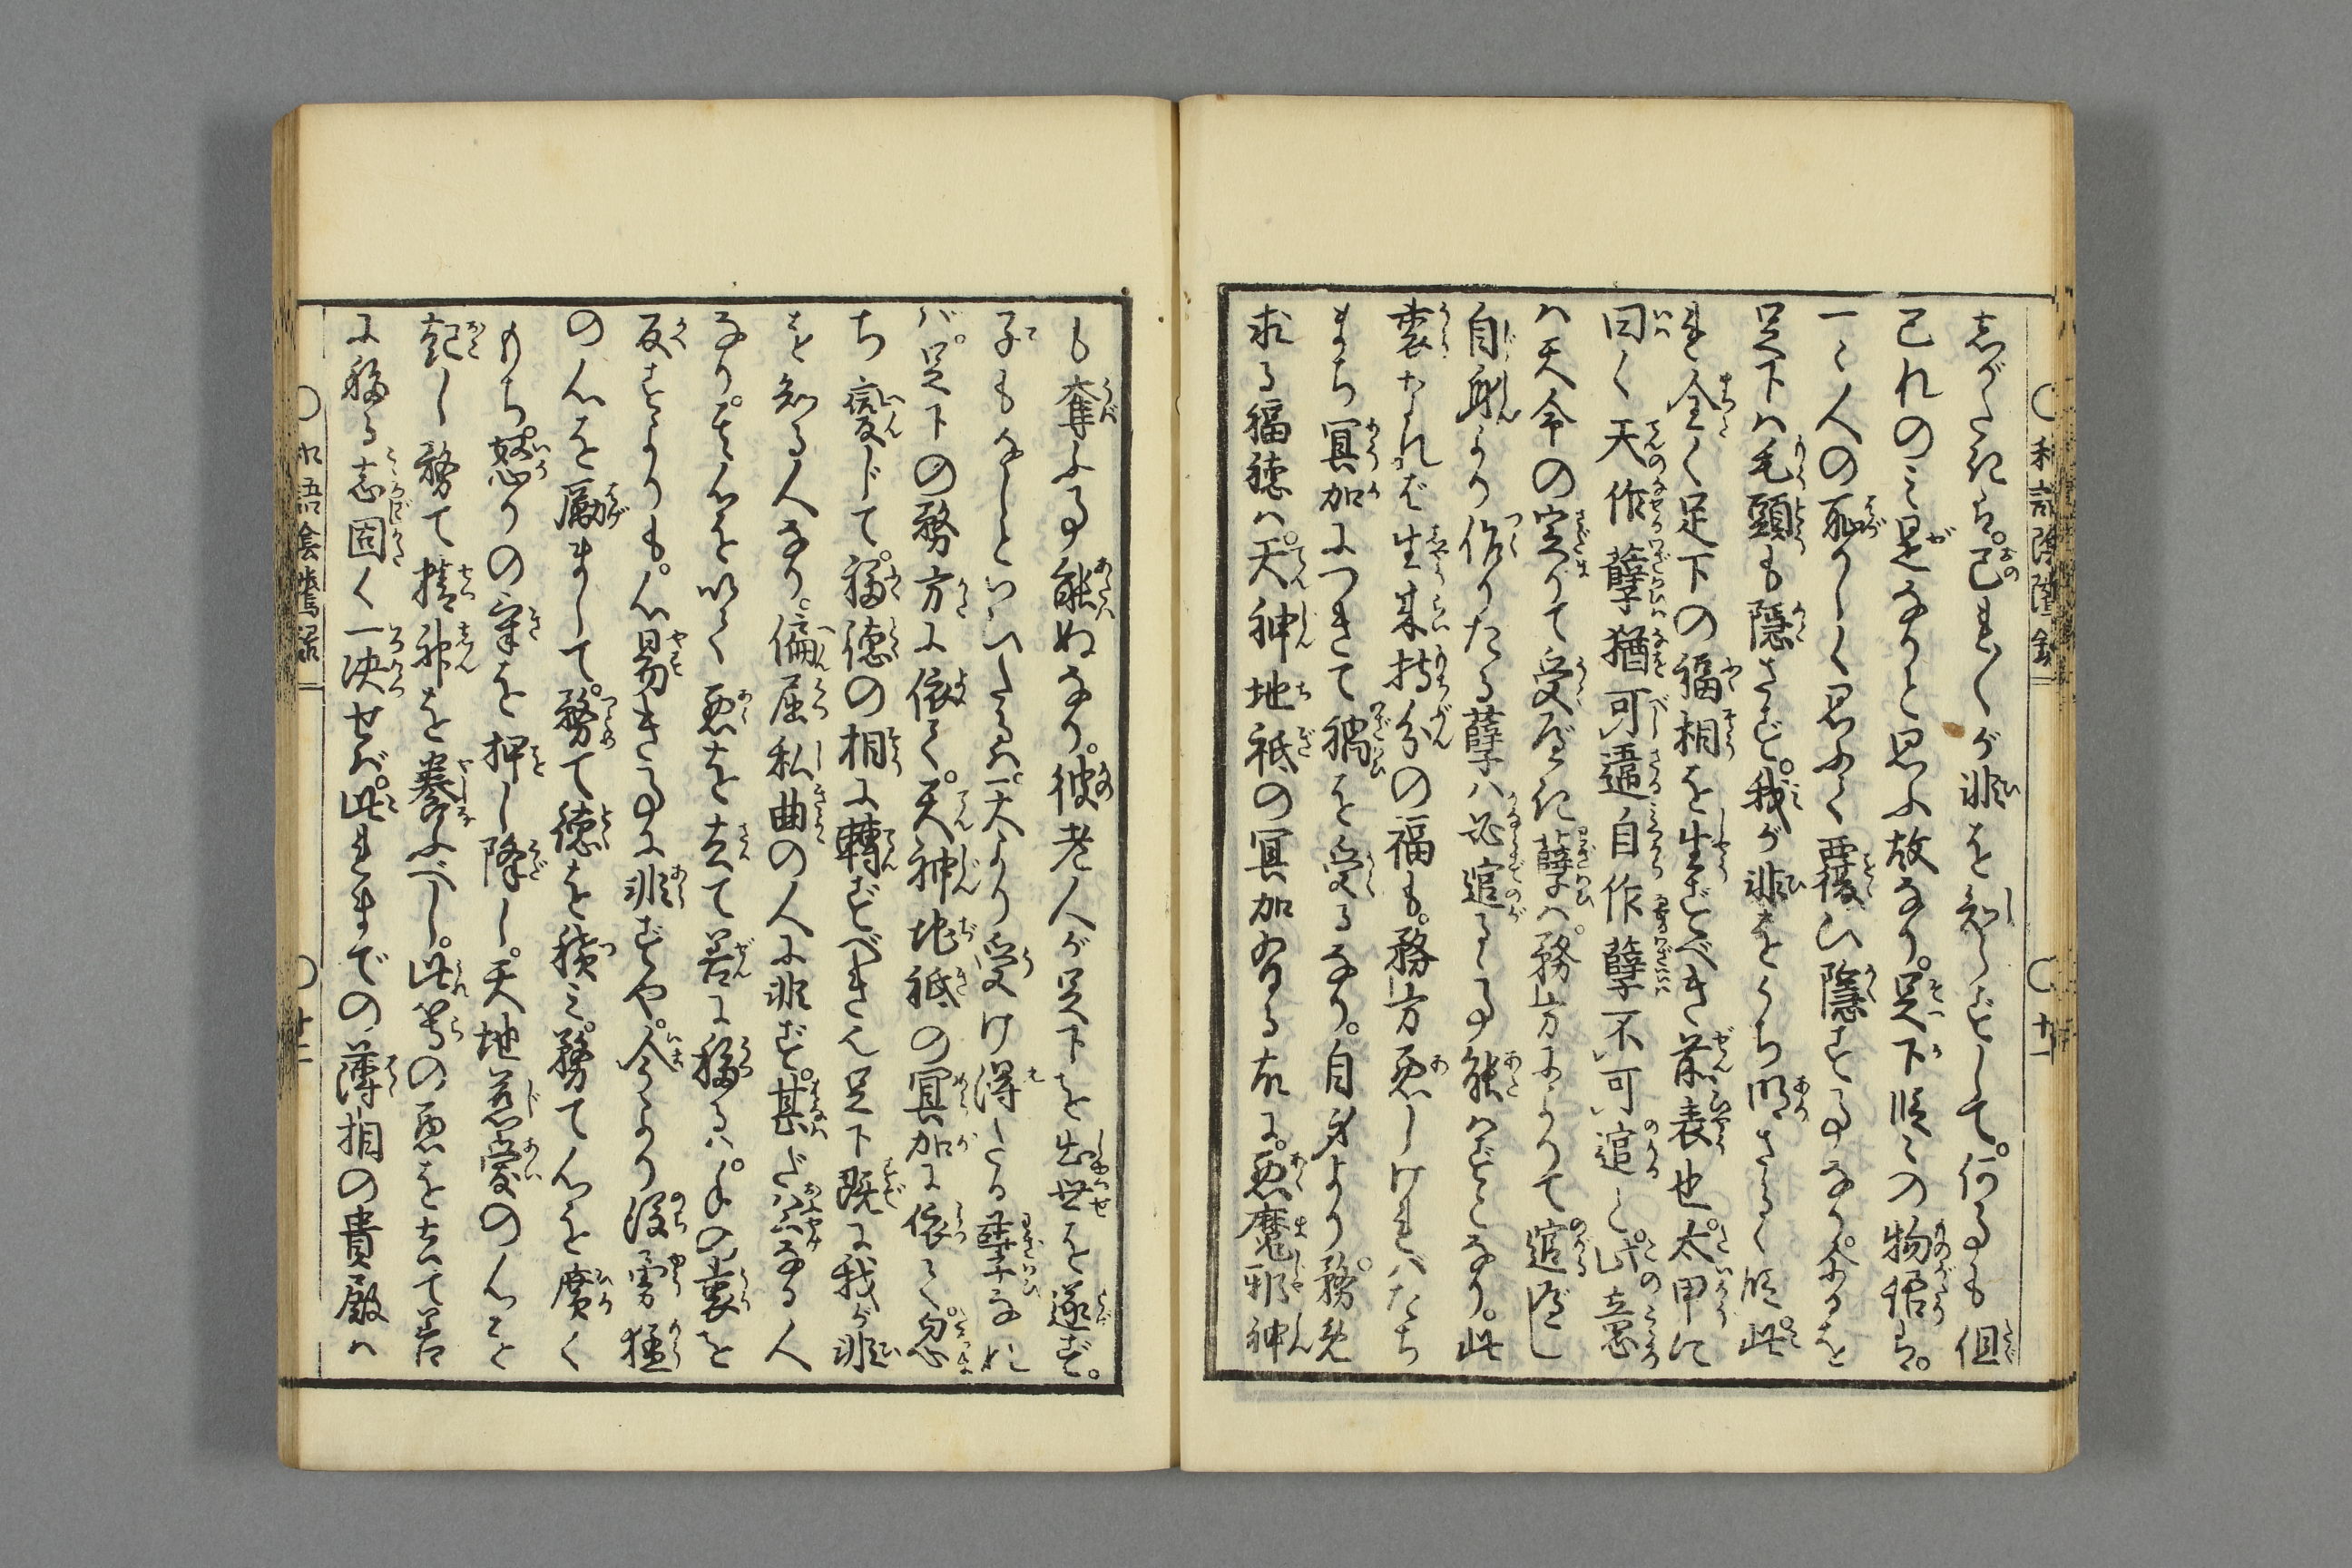 志がたき者。己れ〳〵が非を知らずして。何事も但
己れのミ是なりと思ふ故なり。足下段々の物語は。
一々人の恥かしく思ふて覆ひ隠す事なるを
足下ハ毛頭も隠さず。我が非をうち明さるゝ段此
まゝ全く足下の福相を生ずべき前表也。太甲に
曰く天作孽猶可違自作孽不可逭と。此意
ハ天命の定りて受べき孽ハ。務方によりて逭べし
自身より作りたる孽ハ必逭るゝ事能ハずとなり。此
裏なれバ生来持分の福も。務方悪しければたち
まち冥加につきて禍を受るなり。自身より務免
求る福徳ハ。天神地祇の冥加有る故に。悪魔邪神
も奪ふ事能ぬなり。彼老人が足下を出世を遂ず。
子もなしといハいたるハ。天より受け得たる孽なれ
バ。足下の務方に依て。天神地祇の冥加に依て忽
ち変じて。福徳の相に轉ずべきん足下既に我が非
を知る人なり。偏屈私曲の人に非ず。甚だ公なる人
なり。其心を以て悪を去て善に移るハ。手の裏を
反すよりも。心易き事に非ずや。今より後勇猛
の心を励まして。務て徳を積ミ。務て心を廣く
もち。怒りの气を押し降し。天地慈愛の心を
起し務て精神を養ふべし。此等の悪を去て善
に移る志固く一决せバ。此れまでの薄相の貴殿ハ